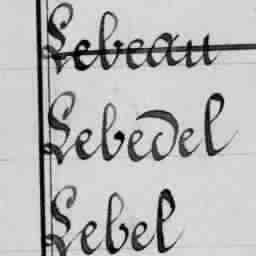 Lebeau
Lebedel
Lebel